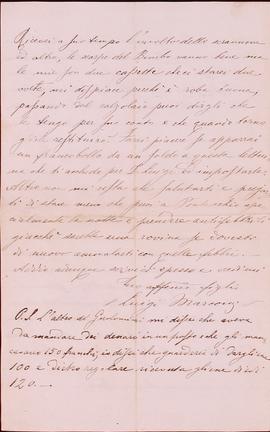 Ricevei a suo tempo l'involto dello scarmane
ed altro, le scarpe del Bimbo vanno bene ma
le mie son due cassette che ci starei due
volte, mi dispiace perchè è roba buona,
passando dal calzolaio puoi dirgli che
le tengo per suo conto e che quando torno
gliele restituirò. Farai piacere se apporrai
un francobollo da un soldo a questa lettera
ma che ti anche per T. Luigi ed impostarla.
Altro non mi resta che salutarti e pregarti
di stare meno che puoi a
specialmente la notte e prendere antifebbrili
giacchè sarebbe una rovina se dovesti
di nuovo ammalarti con quelle febbri.
Addio adunque scrivi spesso e credimi
Tuo affmo figlio
Luigi
P.S. L'altro del mi disse che aveva
da mandare dei denari in un posto e che gli man
cavano 150 franchi, io dissi che guarderei di fargliene
100 e dietro regolare ricevuta gliene diedi
120. —